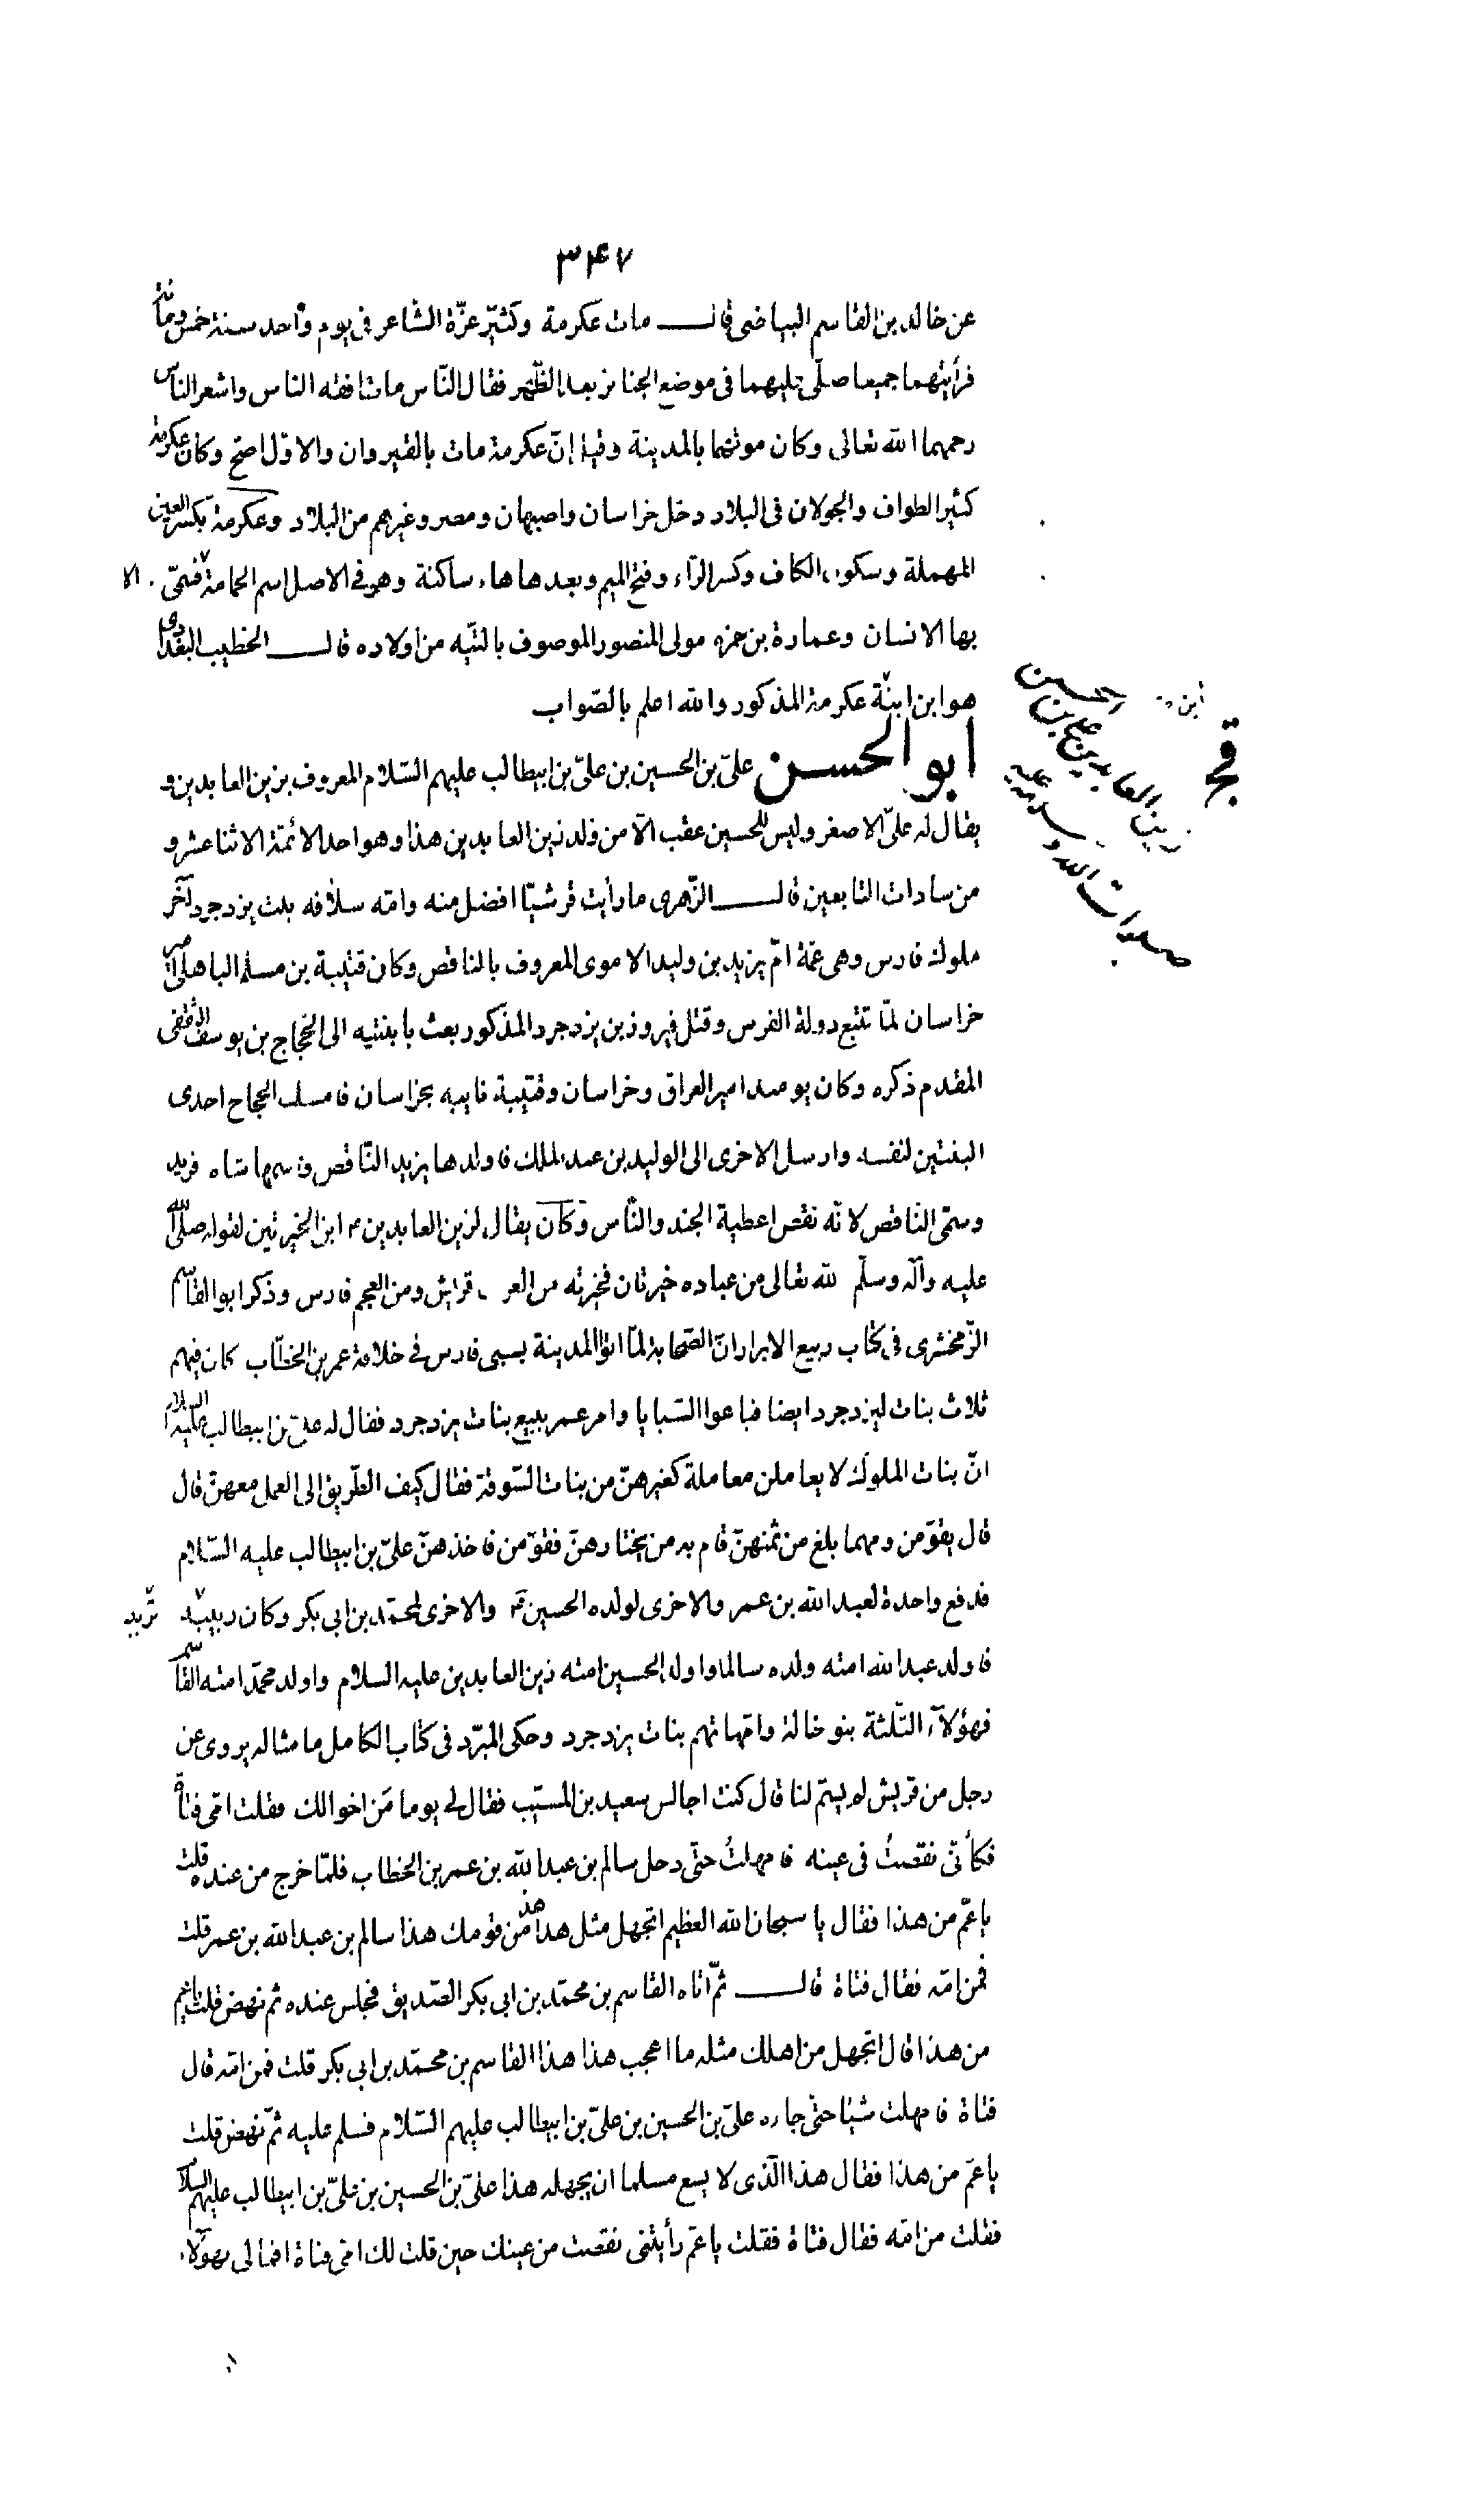 ۳۴۷
عن خالد بن القاسم البياضى قال مات عكرمة وكثيّر عزّة الشّاعر فى يوم واحد سنة خمس ومائة
فرأيتهما جميعا صلّى عليهما فى موضع الجنائز بعد الظّهر فقال النّاس مات افقه الناس واشعر الناس
رحمهما الله تعالى وكان موتهما بالمدينة وقيل إنّ عكرمة مات بالقيروان والاوّل اصحّ وكان عكرمة
كثير الطواف والجولان فى البلاد دخل خراسان واصبهان ومصر وغيرهم من البلاد وعكرمة بكسر العين
المهملة وسكون الكاف وكسر الرّاء وفتح الميم وبعدها هاء ساكنة وهو فى الاصل اسم الحمامة فسمّى الا
بها الانسان وعمارة بن حمزه مولى المنصور الموصوف بالتّيه من اولاده قال الخطيب البغدادى
هو ابن ابنة عكرمة المذكور والله اعلم بالصّواب
ابو الحسن علىّ بن الحسين بن علىّ بن ابيطالب عليهم السّلام المعروف بزين العابدين و
يقال له علىّ الاصغر وليس للحسين عقب الّا من ولد زين العابدين هذا وهو احد الائمّة الاثنا عشر و
من سادات التابعين قال الزّهرى ما رأيت قرشيّا افضل منه وامّه سلافه بنت يزدجرد آخر
ملوك فارس وهى عمّة امّ يزيد بن وليد الاموى المعروف بالناقص وكان قتيبة بن مسلم الباهلى امير
خراسان لمّا تتبع دولة الفرس وقتل فيروز بن يزدجرد المذكور بعث بابنتيه الى الحجّاج بن يوسف الثقفى
المقدم ذكره وكان يومئذ امير العراق وخراسان وقتيبة نايبه بخراسان فامسك الحجاج احدى
البنتين لنفسه وارسل الاخرى الى الوليد بن عبد الملك فاولدها يزيد النّاقص واسمها شاه فريد
وسمّى النّاقص لانّه نقص اعطية الجند والنّاس وكان يقال لزين العابدين ابن الخيرتين لقوله صلّى الله
عليه وآله وسلّم لله تعالى من عباده خيرتان فخيرته من العرب قريش ومن العجم فارس وذكر ابو القاسم
الزّمخشرى فى كتاب ربيع الابرار انّ الصّحابة لمّا اتوا المدينة بسبى فارس فى خلافة عمر بن الخطّاب كان فيهم
ثلاث بنات ليزدجرد ايضا فباعوا السّبايا وامر عمر ببيع بنات يزدجرد فقال له علىّ بن ابيطالب عليه السلام
انّ بنات الملوك لا يعاملن معاملة كغيرهنّ من بنات السّوقة فقال كيف الطّريق الى العمل معهنّ قال
قال يقوّمن ومهما بلغ من ثمنهنّ قام به من يختارهنّ فقوّمن فاخذهنّ علىّ بن ابيطالب عليه السّلام
فدفع واحدة لعبد الله بن عمر والاخرى لولده الحسين والاخرى لمحمّد بن ابى بكر وكان ربيبه
فاولد عبد الله امته ولده سالما واولد الحسين امته زين العابدين عليه السلام واولد محمّد امته القاسم
فهؤلآء الثّلثة بنو خالة وامّهاتهم بنات يزدجرد وحكى المبرّد فى كتاب الكامل ما مثاله يروى عن
رجل من قريش لم يسمّ لنا قال كنت اجالس سعيد بن المسيّب فقال لى يوما من اخوالك فقلت امّى فتاة
فكأنّى نقصتُ فى عينه فامهلتُ حتّى دخل سالم بن عبد الله بن عمر بن الخطاب فلمّا خرج من عنده قلت
يا عمّ من هذا فقال يا سبحان الله العظيم اتجهل مثل هذا من قومك هذا سالم بن عبد الله بن عمر قلت
فمن امّه فقال فتاة قال ثمّ اتاه القاسم بن محمّد بن ابى بكر الصّديق فجلس عنده ثم نهض قلت يا عم
من هذا قال اتجهل من اهلك مثله ما اعجب هذا هذا القاسم بن محمّد بن ابى بكر قلت فمن امّه قال
فتاة فامهلت شيئا حتّى جاءه علىّ بن الحسين بن علىّ بن ابيطالب عليهم السّلام فسلم عليه ثمّ نهض قلت
يا عمّ من هذا فقال هذا الّذى لا يسع مسلما ان يجهله هذا علىّ بن الحسين بن علىّ بن ابيطالب عليهم السلام
فقلت من امّه فقال فتاة فقلت يا عمّ رأيتنى نقصت من عينك حين قلت لك امّى فتاة افما لى بهؤلآء
زين العابدين على بن الحسين
صلوات الله و سلامه عليه